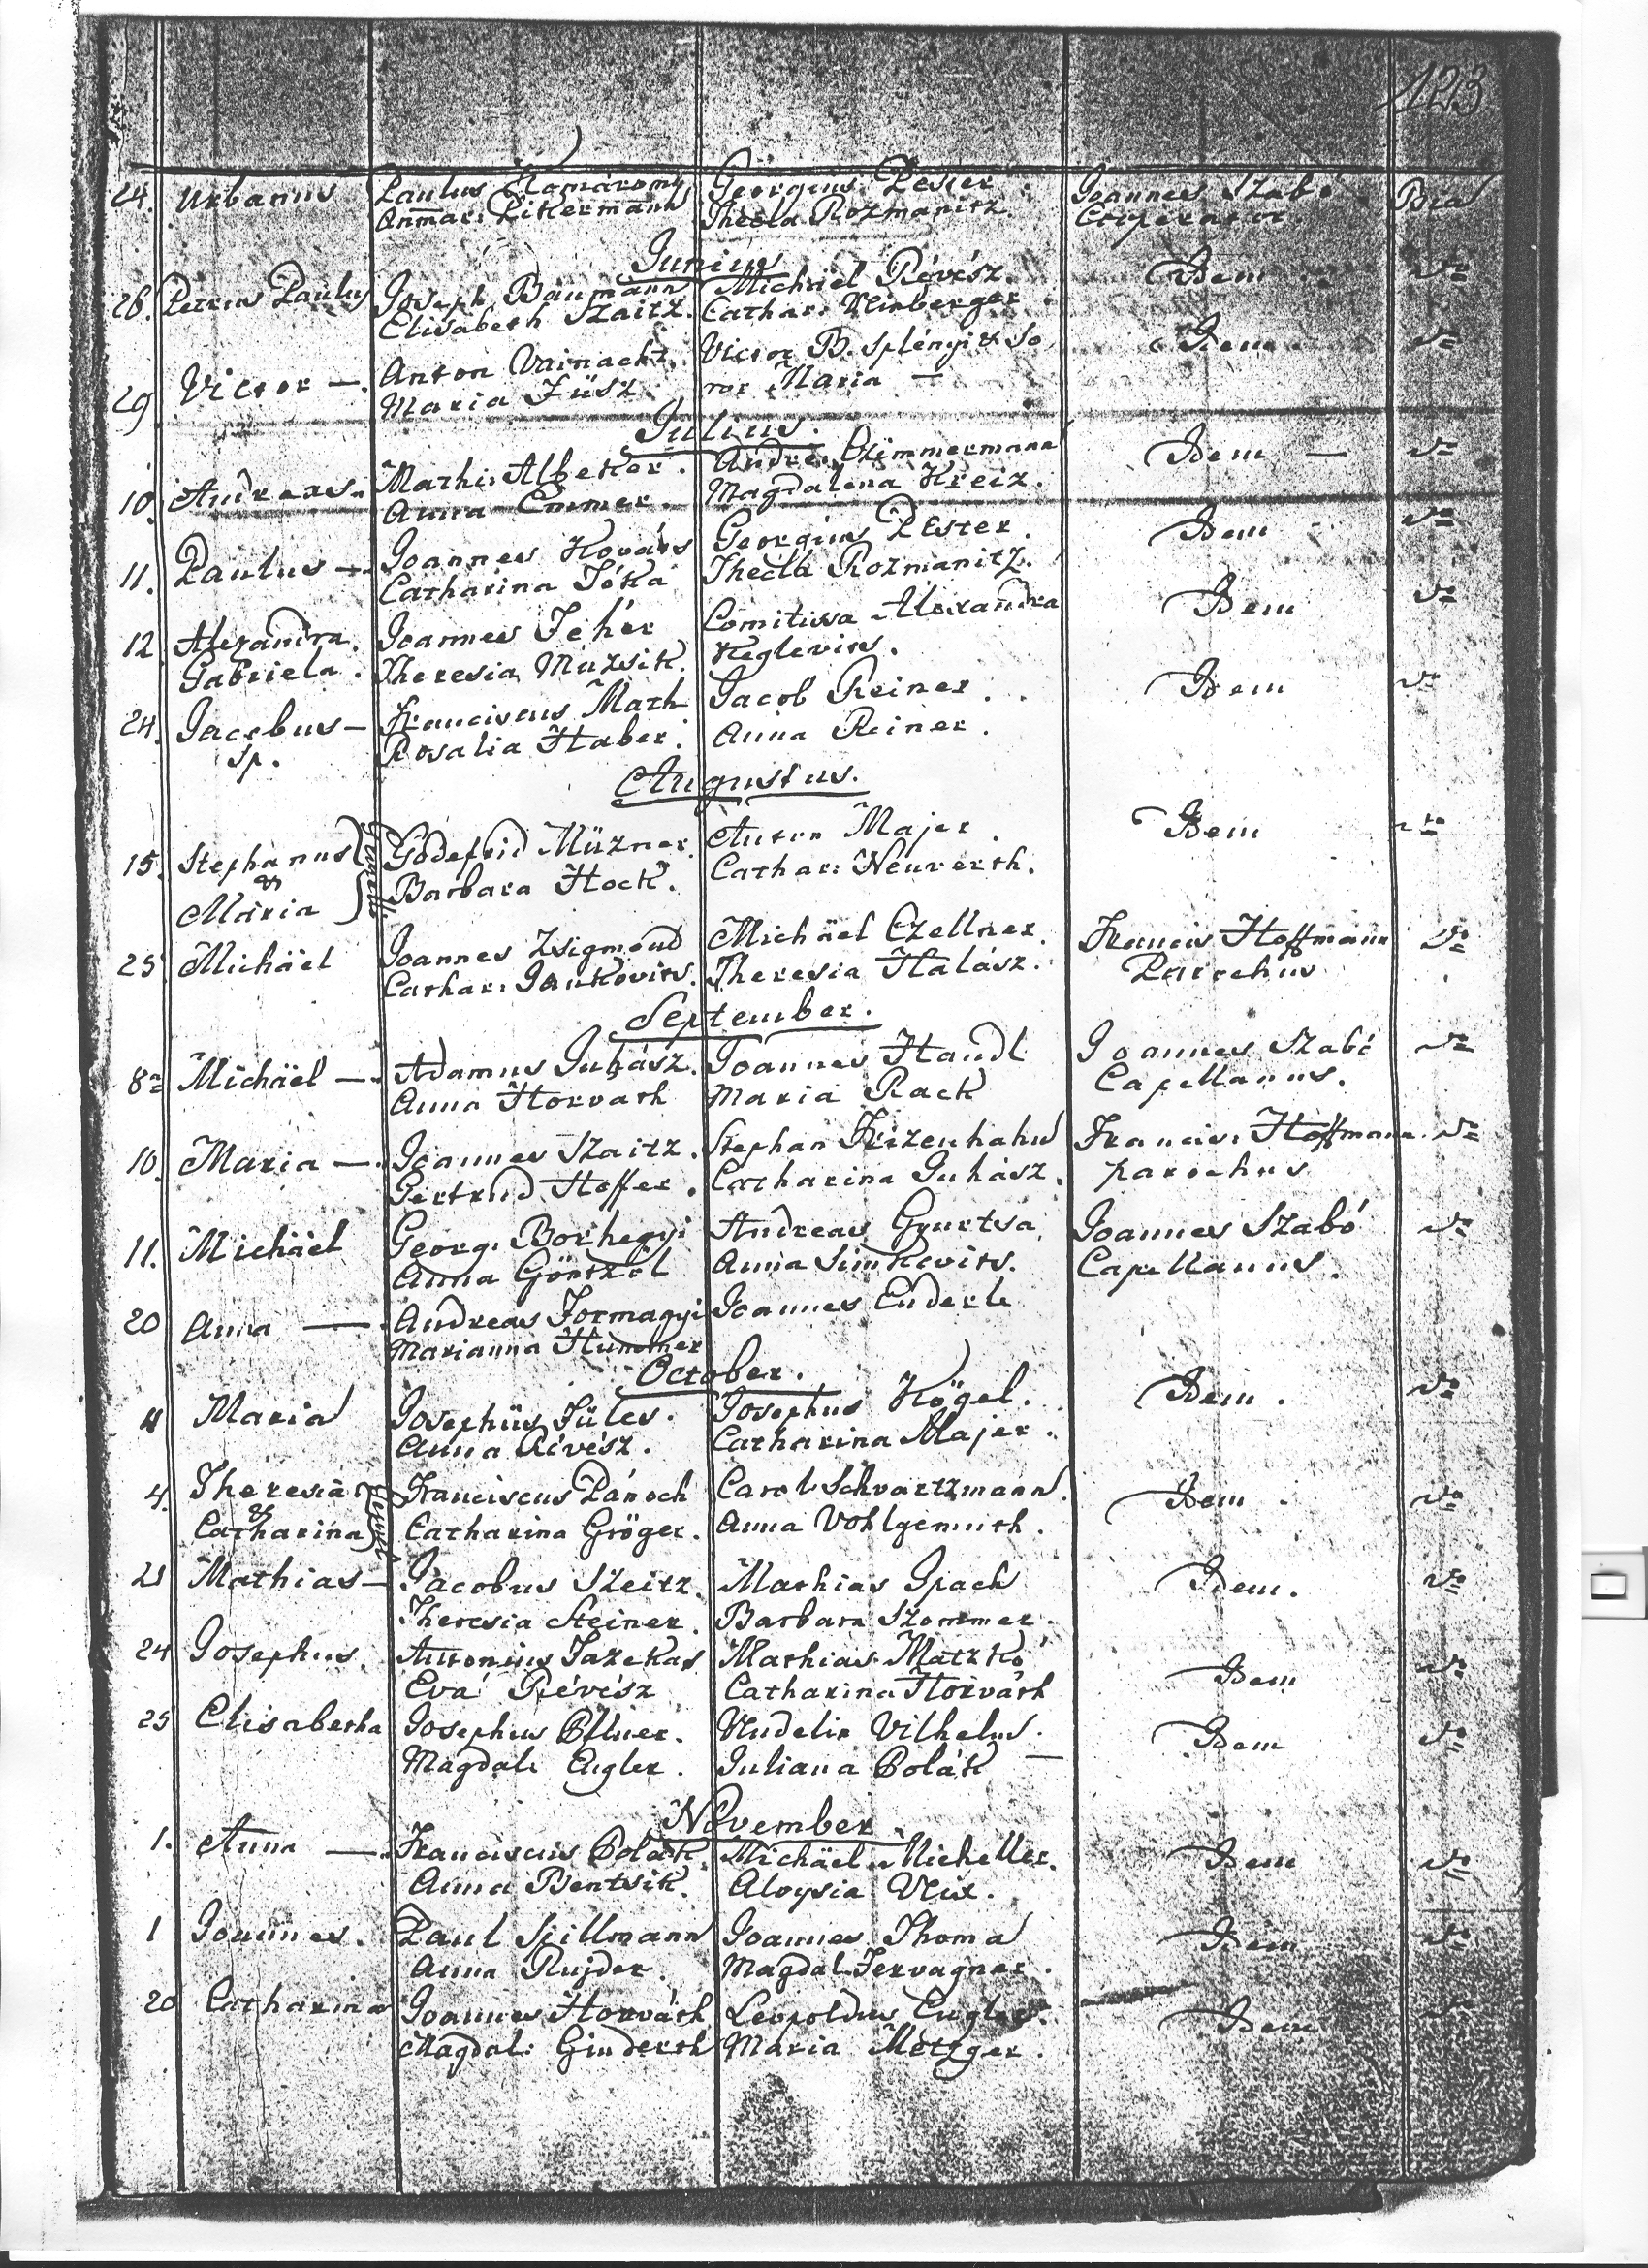 123
24. Urbanus Paulus Komáromy Georgius Pester Joannes Szabó Bia
Anmar: Pikermann Thecla Rozmanitz Cooperator
Junius
26. Petrus Paulus Joseph Baumann Michäel Révész Idem do
Elisabeth Szaitz. Cathar:
29 Victor —. Anton Vainacht Victor B. Splényi et So Idem do
Maria Füsz. ror Maria —
Julius.
10. Andreas Mathi: Albeker. Andreas Czimmermann Idem — do
Anna Emmer. Magdalena Kreiz.
11. Paulus —. Joannes Kovács Georgius Pester. Idem do
Catharina Jóka Thecla Rozmanitz.
12 Alexandra. Joannes Fehér Comitissa Alexandra Idem do
Gabriela. Theresia Muzsik. Keglevits.
24. Jacobus — Franciscus Math Jacob Reiner. Idem do
Sp. Rosalia Haber. Anna Reiner.
Augustus.
15. Stephanus Gemelli Godefrid Müzner. Anton Majer. Idem do
et Barbara Hock. Cathar: Neuverth.
Maria
25 Michäel Joannes Zsigmond Michäel Czellner. Francis Hoffmann do
Cathar: Jankovits. Theresia Halász. Parochus
September.
8a Michäel —. Adamus Juhász. Joannes Handl Joannes Szabó do
Anna Horvath Maria Rack Capellanus.
10. Maria —. Joannes Szaitz. Stephan Frizenhahn Francis: Hoffmann do
Gertrud Hoffer. Catharina Juhász. parochus
11. Michäel Georg: Borhegyi Andreas Gyurtsa Joannes Szabó do
Anna Göntzöl Anna Simkovits. Capellanus.
20 Anna —. Andreas Formagyi Joannes Enderle
Marianna Hummer
October.
4 Maria Josephus Füles. Josephus Kögel. Idem. do
Anna Révész. Catharina Majer.
4. Theresia Gemel Franciscus Pánoch Carol Schvartzmann. Idem. do
et
Catharina Catharina Gröger. Anna Vohlgemuth.
21 Mathias — Jacobus Szeitz. Mathias Spach Idem. do
Theresia Steiner. Barbara Szommer.
24 Josephus. Antonius Fazekas Mathias Matzkó Idem do
Eva Révész Catharina Horváth
25 Elisabetha Josephus Vilhelm. Idem do
Magdal: Engler. Juliana Polák —
November.
1. Anna —. Franciscus Polák. Michäel Micheller. Idem do
Anna Bentsik. Aloysia
1 Joannes. Paul Spillmann Joannes Thoma Idem do
Anna Rujder. Magdal. Fervagner.
20 Catharina Joannes Horváth Leopoldus Engler. Idem do
Magdal: Ginderth Maria Metzger.